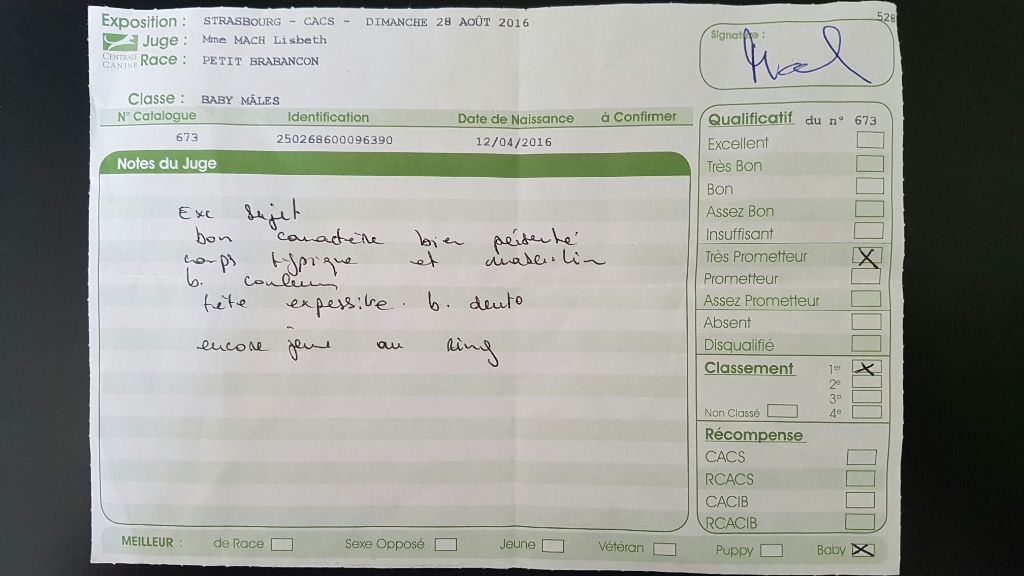 Exposition : STRASBOURG - CACS - DIMANCHE 28 AOÛT 2016
528
Juge : Mme MACH Lisbeth
Signature :
CENTRALE CANINE
Race : PETIT BRABANCON
Classe : BABY MÂLES
N° Catalogue Identification Date de Naissance à Confirmer
673 250268600096390 12/04/2016
Notes du Juge
Exc sujet
bon caractère bien présenté
corps typique et masculin
b. couleur
tête expessive. b. dento
encore jeune au ring
Qualificatif du n° 673
Excellent
Très Bon
Bon
Assez Bon
Insuffisant
Très Prometteur X
Prometteur
Assez Prometteur
Absent
Disqualifié
Classement 1er X
2e
3e
Non Classé 4e
Récompense
CACS
RCACS
CACIB
RCACIB
MEILLEUR : de Race Sexe Opposé Jeune Vétéran Puppy Baby X